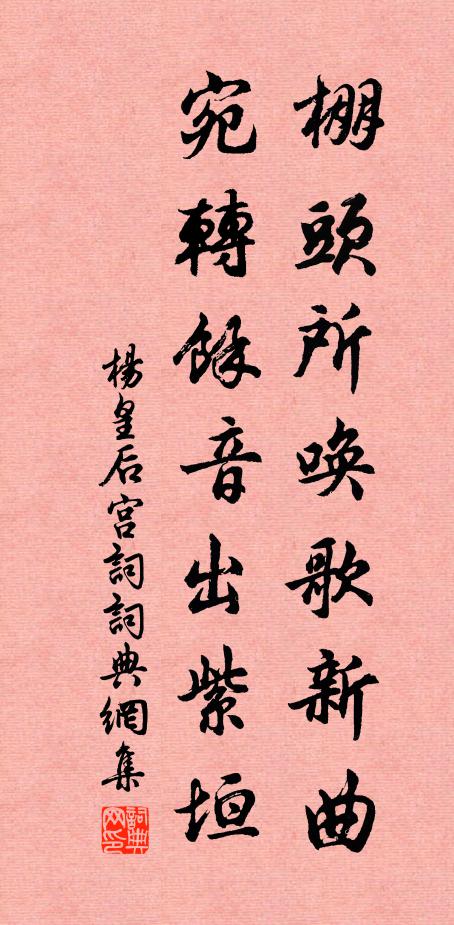 棚頭所喚歌新曲
宛轉餘音出紫垣
楊皇后宮詞詞典網集
詞典网印